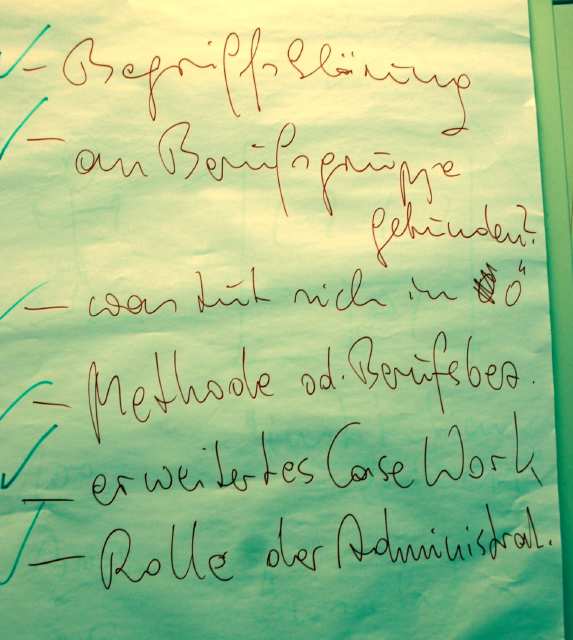 - Begriffsklärung
- an Berufsgruppe
gebunden?
- was tut sich in Ö
- Methode od. Berufsbez.
- erweitertes Case Work
- Rolle der Administrat.